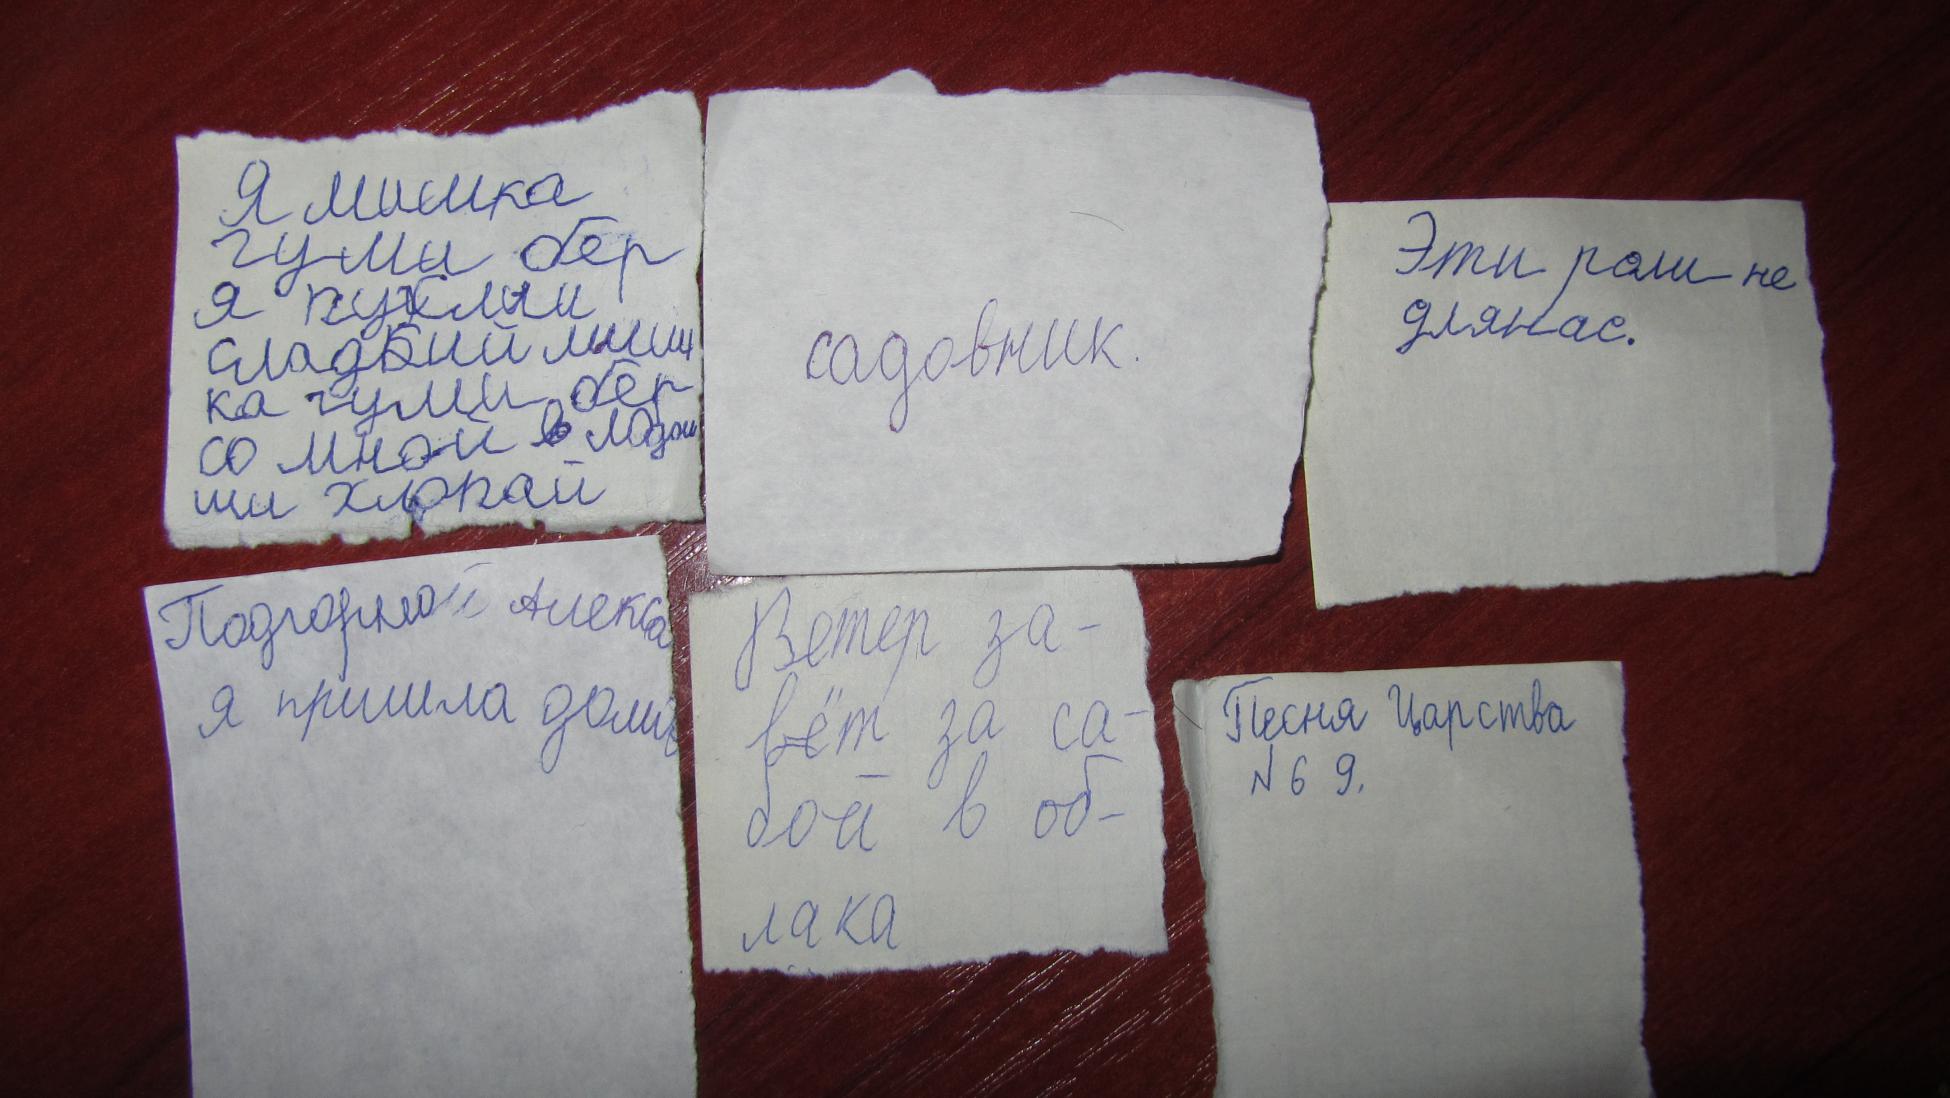 Я мишка
гуми бер
я пухлый
сладкий миш
ка гуми бер
со мной в ладош
ши хлопай
садовник.
Эти роли не
длянас.
Подгорной Алекса
я пришла домой
Ветер за-
вёт за са-
бой в об-
лака
Песня Царства
N 6 9.